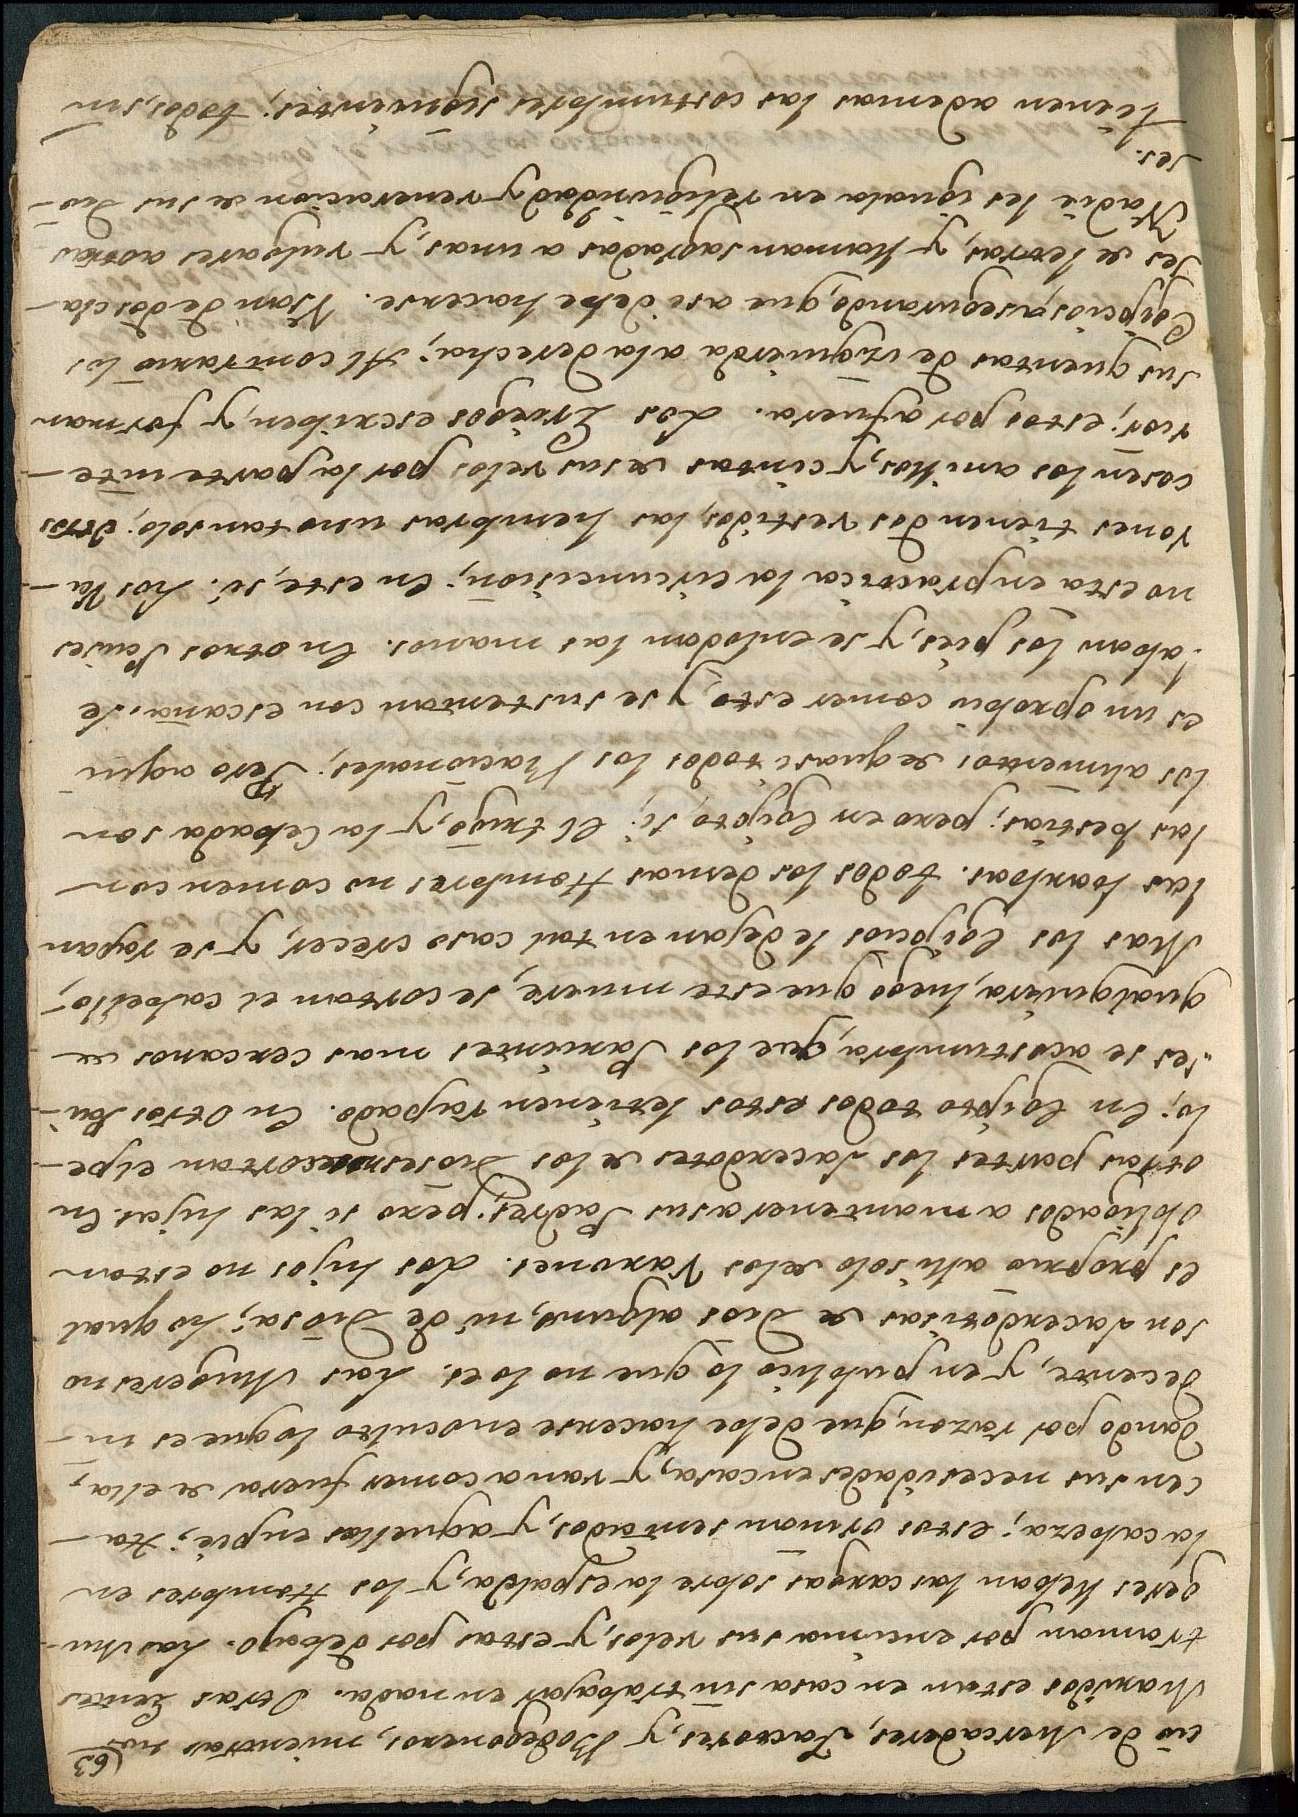 (63
cio de Mercaderes, Factores, y Bodegoneros, mientras sus
Maridos estan en casa sin trabajar en nada. Otras Gentes
traman por encima sus velos, y estas por debajo. Las Mu-
geres lleban las cargas sobre la espalda, y los Hombres en
la cabeza; estos orinan sentados, y aquellas en pie; Ha-
cen sus necesidades en casa, y van a comer fuera de ella;
dando por razon, que debe hacerse en oculto lo que es in-
decente, y en publico lo que no lo es. Las Mugeres no
son sacerdotisas de Dios alguno, ni de Diosa; lo qual
es proprio alli solo de los Varones. Los hijos no estan
obligados a mantener a sus Padres; pero si las hijas. En
otras partes los sacerdotes de los Dioses no se cortan el pe-
lo; En Egipto todos estos le tienen rapado. En Otros Pai-
ses se acostumbra, que los Parientes mas cercanos de
qualquiera, luego que este muere, se cortan el cabello;
Mas los Egipcios le dejan en tal caso crecer, y se rapan
las barbas. Todos los demas Hombres no comen con
las bestias; pero en Egipto, si; El trigo, y la Cebada son
los alimentos de quasi todos los Nacionales; Pero aqui
es un oprobio comer esto, y se sustentan con escaña. Se
laban los pies, y se enlodan las manos. En otros Paises
no esta en practica la circuncision; En este, si. Los Va-
rones tienen dos vestidos, las hembras uno tan solo; Otros
cosen los anillos, y cintas de sus velos por la parte inte-
rior; estos por afuera. Los Griegos escriben, y forman
sus quentas de izquierda a la derecha; Al contrario los
Egipcios, asegurando, que asi debe hacerse. Usan de dos cla-
ses de letras, y llaman sagradas a unas, y vulgares a otras
Nadie les iguala en religiosidad y veneracion de sus Dio-
ses.
Tienen ademas las costumbres siguientes; todos, sin